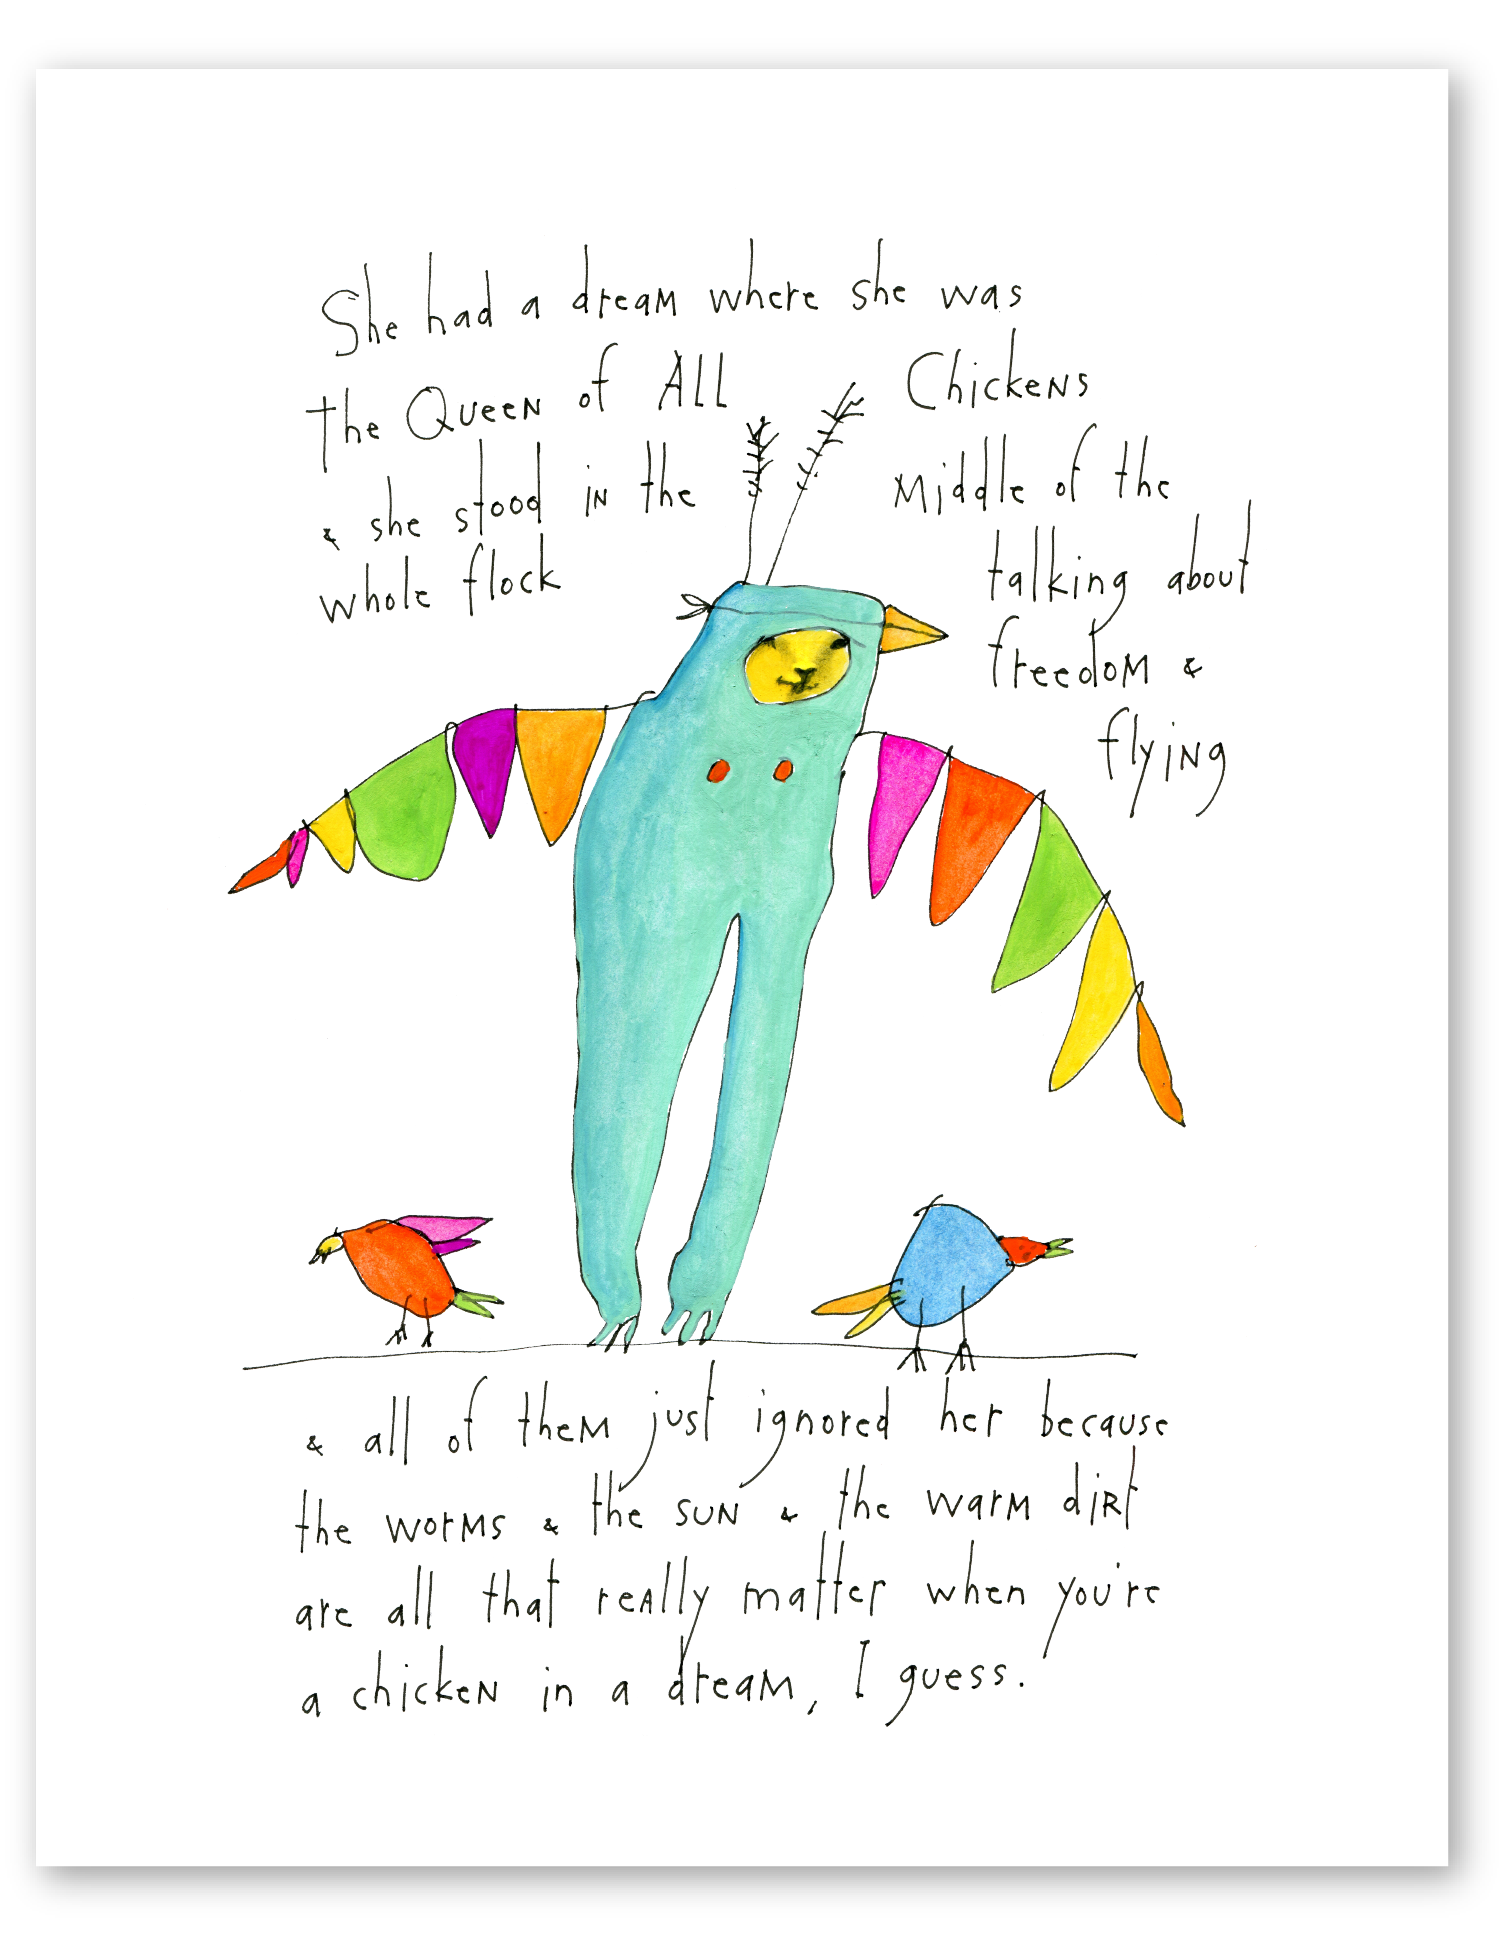 She had a dream where she was
the Queen of All Chickens
& she stood in the middle of the
whole flock talking about
freedom &
flying
& all of them just ignored her because
the worms & the sun & the warm dirt
are all that really matter when you're
a chicken in a dream, I guess.